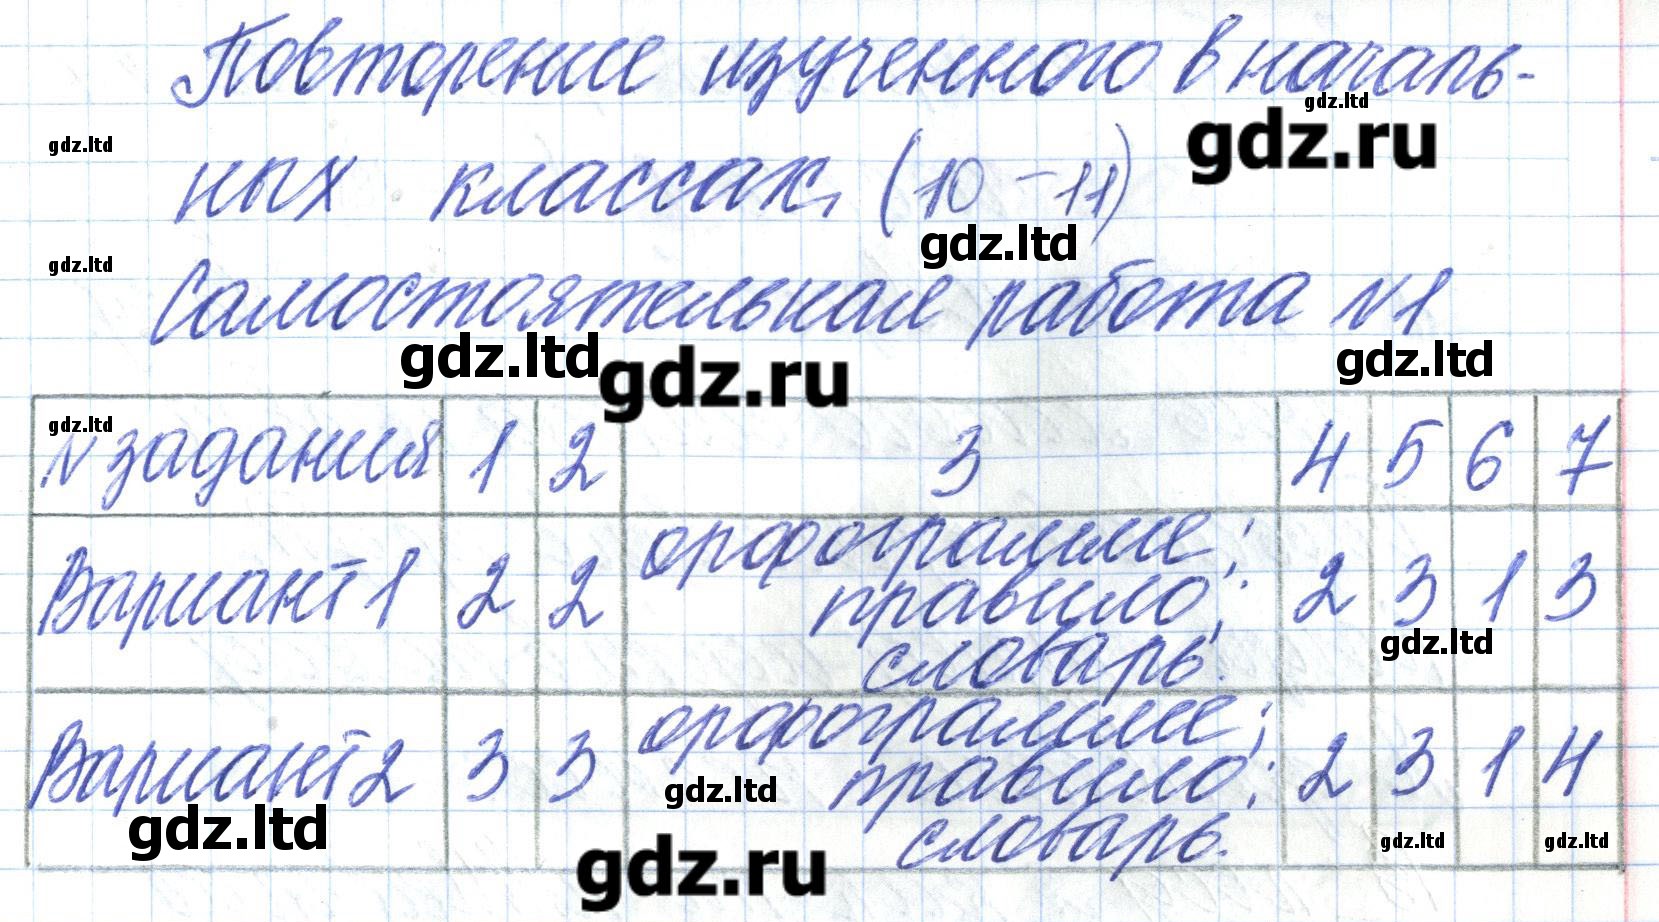 Повторение изученного в началь-
gdz.ltd
gdz.ru
gdz.ltd
ных классах, (10-11)
gdz.ltd
gdz.ltd
Самостоятельная работа №1
gdz.ltd gdz.ru gdz.ltd
gdz.ltd
№ заданий 1 2 3 4 5 6 7
Вариант 1 2 2 орфограмме; правило; словарь. 2 3 1 3
gdz.ltd
Вариант 2 3 3 орфограмме; правило; словарь. 2 3 1 4
gdz.ltd
gdz.ltd gdz.ru gdz.ltd gdz.ltd